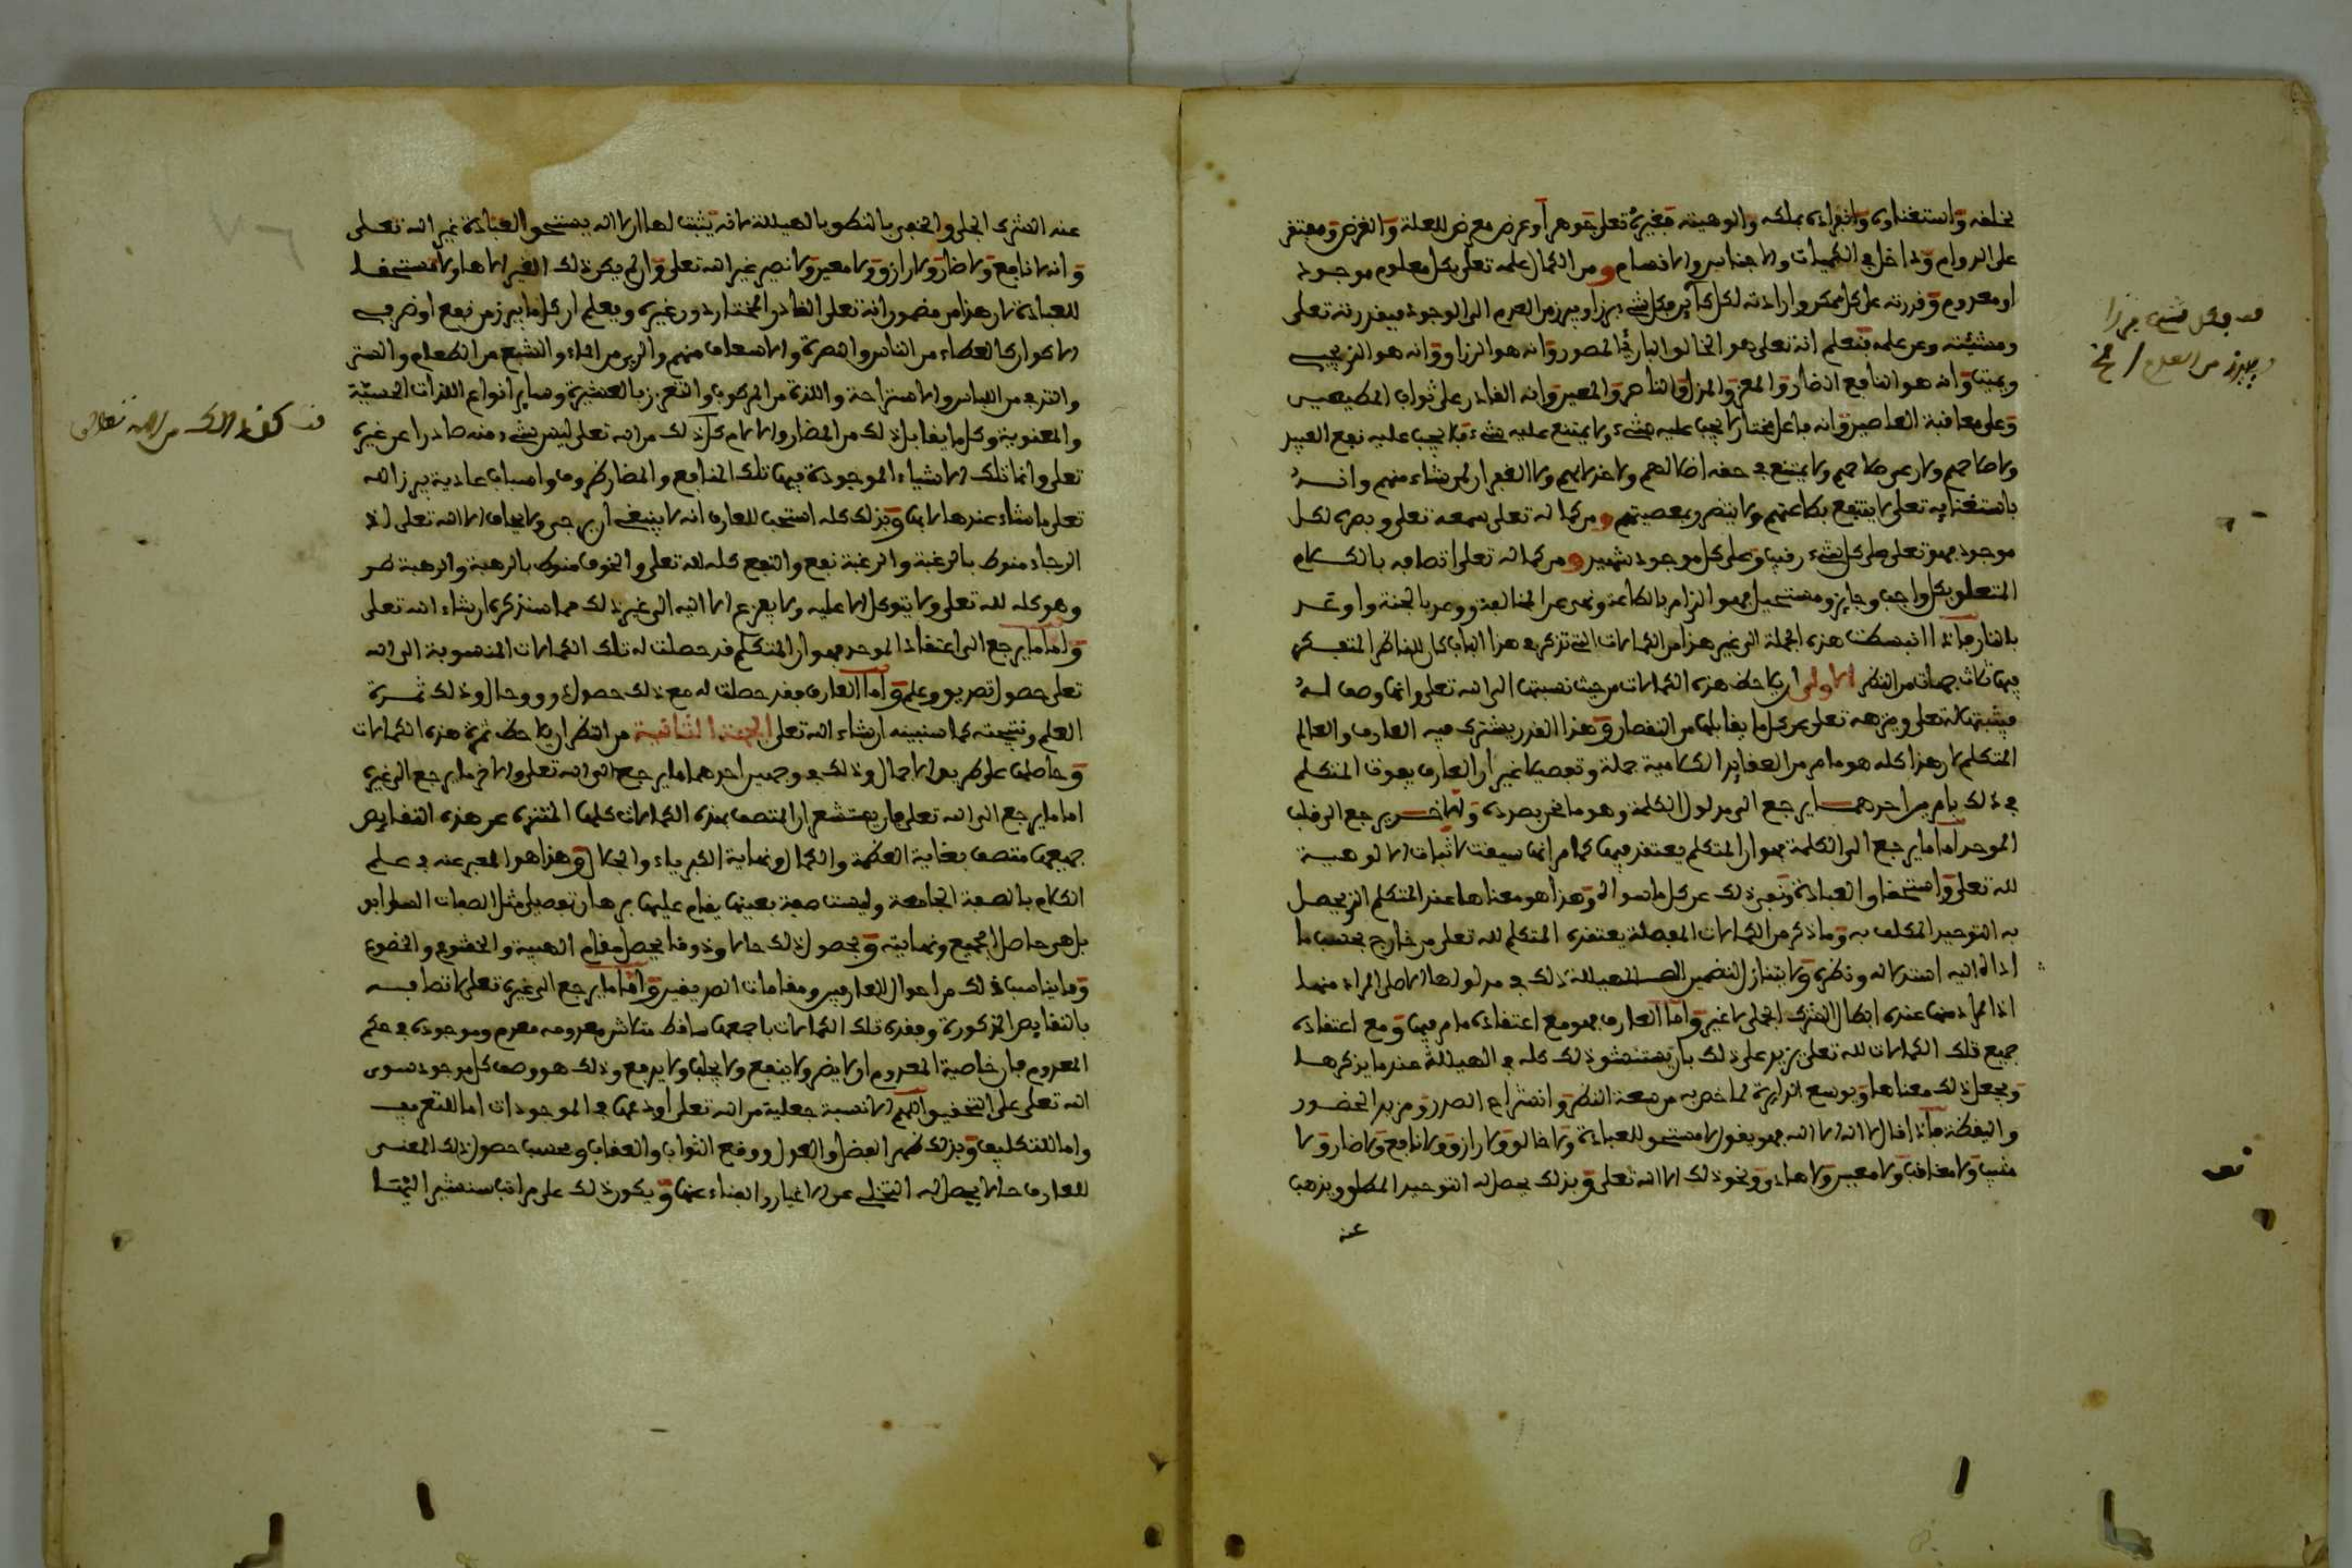 بخلفه واستغناوه وانفراده بملكه والوهيته فغيره تعلى جوهر او عرض معرض للعلة والغرض ومفتقر
على الدوام وداخل في الكميات والاجناس والانفسام ومن الكمال علمه تعلى بكل معلوم موجود
او معدوم وقدرته على كل ممكن وارادته لكل كاين فكل شيء برز او يبرز من العدم الى الوجود فبقدرته تعلى
ومشيئته وعن علمه فتعلم انه تعلى هو الخالق البارئ المصور وانه هو الرزاق وانه هو الذي يحيي
ويميت وانه هو النافع الضار والمعز والمذل والناصر والمعين وانه القادر على ثواب المطيعين
وعلى معاقبة العاصين وانه فاعل مختار لا يجب عليه شيء ولا يمتنع عليه شيء فلا يجب عليه نفع العبيد
ولا صلاحهم ولا رعي صلاحهم ولا يمتنع في حقه اضلالهم ولا خذلانهم ولا الفعل لمن شاء منهم وانه
باستغنايه تعلى لا ينتفع بطاعتهم ولا يتضرر بمعصيتهم ومن كماله تعلى سمعه تعلى وبصره لكل
موجود فهو تعلى على كل شيء رقيب وعلى كل موجود شهيد ومن كماله تعلى اتصافه بالكلام
المتعلق بكل واجب وجايز ومستحيل فهو الزام بالطاعة ونهى عن المخالفة ووعد بالجنة واوعد
بالنار فاذا انبسطت هذه الجملة الى غير هذا من الكمالات التي تذكر في هذا الباب كان للناظر المتفكر
فيها ثلاث جهات من النظر الاولى ان يلاحظ هذه الكمالات من حيث نسبتها الى الله تعلى وانها وصف له
فيثبتها له تعلى وينزهه تعلى عن كل ما يقابلها من النقصان وهذا القدر يشترك فيه العارف والعالم
المتكلم لان هذا كله هو مامر من العقايد الكلامية جملة وتفصيلا غير ان العارف يفوق المتكلم
في ذلك بامرين احدهما يرجع الى مدلول الكلمة وهو ما نحن بصدده والاخر يرجع الى قلب
الموحد اما ما يرجع الى الكلمة فهو ان المتكلم يعتقد فيها كما مر انها سيقت لاثبات الالوهية
لله تعلى واستحقاق العبادة ونفي ذلك عن كل ما سواه وهذا هو معناها عند المتكلم الذي يحصل
به التوحيد المكلف به وما ذكر من الكمالات المفصلة يعتقده المتكلم لله تعلى من خارج بحسب ما
اداه اليه استدلاله ونظره ولا يتنازل لتضمين الهيللة ذلك في مدلولها الاصلي المراد منها
اذ المراد منها عنده ابطال الشرك الجلي لا غير واما العارف فهو مع اعتقاده مامر فيها ومع اعتقاده
جميع تلك الكمالات لله تعلى يزيد على ذلك بان يستنشق ذلك كله في الهيللة عند ما يذكرها
ويجعل ذلك معناها ويوسع الدايرة لما خص به من سعة النظر وانشراح الصدر ومزيد الحضور
واليقظة فاذا قال لا اله الا الله فهو يقول لا مستحق للعبادة ولا خالق ولا رازق ولا نافع ولا ضار ولا
مثيب ولا معاقب ولا معين ولا هادي ونحو ذلك الا الله تعلى وبذلك يحصل له التوحيد المطلق ويذهب
عنه
فكل شيء برزا
ويبرز من العدم
عنه الشرك الجلي والخفي بالنطق بالهيللة لانه يثبت لها ان لا اله يستحق العبادة غير الله تعلى
وانه لا نافع ولا ضار ولا رازق ولا معين ولا نصير غير الله تعلى وان لم يكن ذلك الغير الاها ولا مستحقا
للعبادة لان هذا من مضمون انه تعلى القادر المختار دون غيره ويعلم ان كل ما يبرز من نفع او ضر في
الاكوان كالعطاء من الناس والنصرة والاسعاف منهم والري من الماء والشبع من الطعام والستر
والترفه من اللباس والاستراحة واللذة من المركوب والتعزز بالعشيرة وساير انواع اللذات الحسية
والمعنوية وكل ما يقابل ذلك من المضار والالام كل ذلك من الله تعلى ليس شيء منه صادرا عن غيره
تعلى وانما تلك الاشياء الموجودة فيها تلك المنافع والمضار ظروف واسباب عادية يبرز الله
تعلى ما شاء عندها لا بها وبذلك كله استحب للعارف انه لا ينبغي ان يرجى ولا يخاف الا الله تعلى اذ
الرجاء منوط بالرغبة والرغبة نفع والنفع كله لله تعلى والخوف منوط بالرهبة والرهبة ضر
وهو كله لله تعلى ولا يتوكل الا عليه ولا يفزع الا اليه الى غير ذلك مما سنذكره ان شاء الله تعلى
واما ما يرجع الى اعتقاد الموحد فهو ان المتكلم قد حصلت له تلك الكمالات المنسوبة الى الله
تعلى حصول تصديق وعلم واما العارف فقد حصلت له مع ذلك حصول ذوق وحال وذلك ثمرة
العلم ونتيجته كما سنبينه ان شاء الله تعلى الجهة الثانية من النظر ان يلاحظ ثمرة هذه الكمالات
وحاصلها على طريق الاجمال وذلك في وجهين احدهما ما يرجع الى الله تعلى والاخر ما يرجع الى غيره
اما ما يرجع الى الله تعلى فان يستشعر ان المتصف بهذه الكمالات كلها المتنزه عن هذه النقايص
جميعها متصف بغاية العظمة والكمال ونهاية الكبرياء والجلال وهذا هو المعبر عنه في علم
الكلام بالصفة الجامعة وليست صفة بعينها يقام عليها برهان تفصيلي مثل الصفات السوابق
بل هي حاصل الجميع ونهايته وبحصول ذلك حالا وذوقا يحصل مقام الهيبة والخشوع والخضوع
وما يناسب ذلك من احوال العارفين ومقامات الصديقين واما ما يرجع الى غيره تعلى لاتصافه
بالنقايص المذكورة وفقده تلك الكمالات باجمعها ساقط متلاش معدوم وموجوده في حكم
المعدوم فان خاصية المعدوم ان لا يضر ولا ينفع ولا يجلب ولا يدفع وذلك هو وصف كل موجود سوى
الله تعلى على التحقيق اللهم الا نسبة جعلية من الله تعلى اودعها في الموجودات اما للتعريف
واما للتكليف وبذلك ظهر الفضل والعدل ووقع الثواب والعقاب وبحسب حصول ذلك المعنى
للعارف حالا يحصل له التخلي عن الاغيار والفناء عنها ويكون ذلك على مراتب سنشير اليها
كل ذلك من الله تعالى